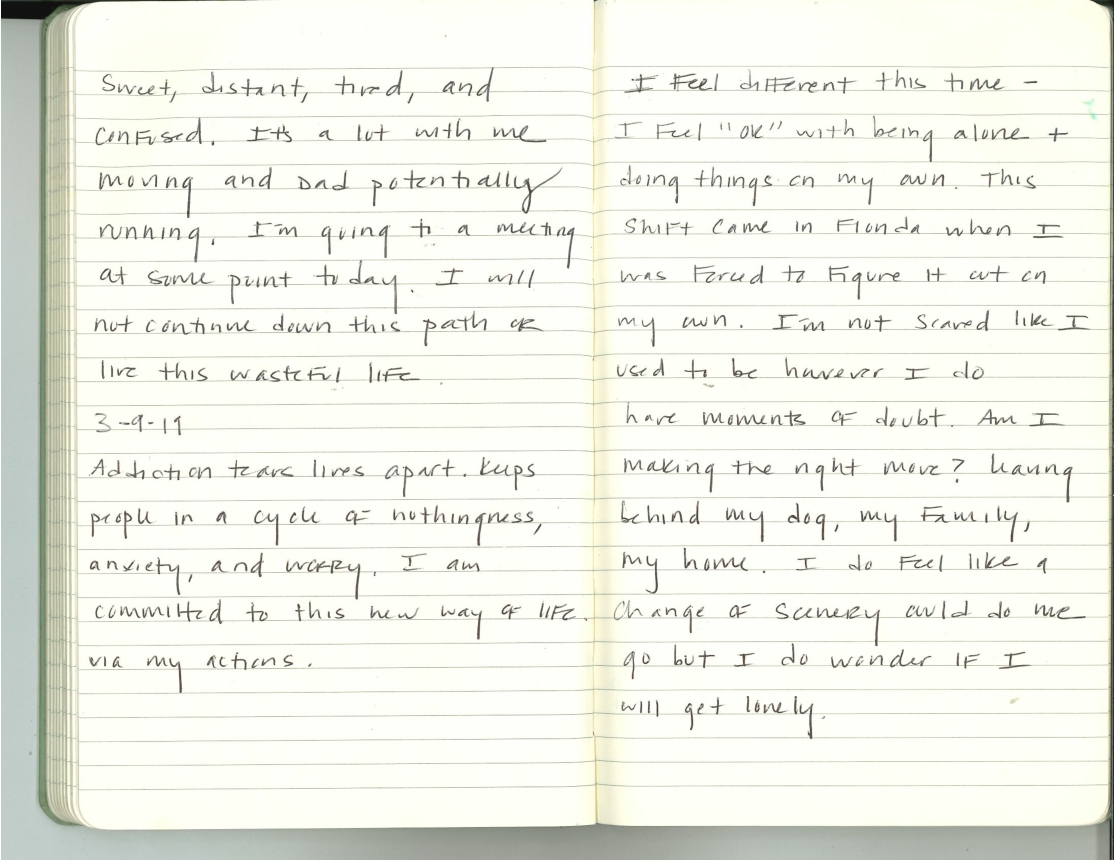 Sweet, distant, tired, and
confused. It's a lot with me
moving and Dad potentially
running. I'm going to a meeting
at some point today. I will
not continue down this path or
live this wasteful life.
3-9-19
Addiction tears lives apart. Keeps
people in a cycle of nothingness,
anxiety, and worry. I am
committed to this new way of life.
via my actions.
I feel different this time -
I feel "ok" with being alone +
doing things on my own. This
shift came in Florida when I
was forced to figure it out on
my own. I'm not scared like I
used to be however I do
have moments of doubt. Am I
making the right move? Leaving
behind my dog, my family,
my home. I do feel like a
change of scenery could do me
go but I do wonder if I
will get lonely.